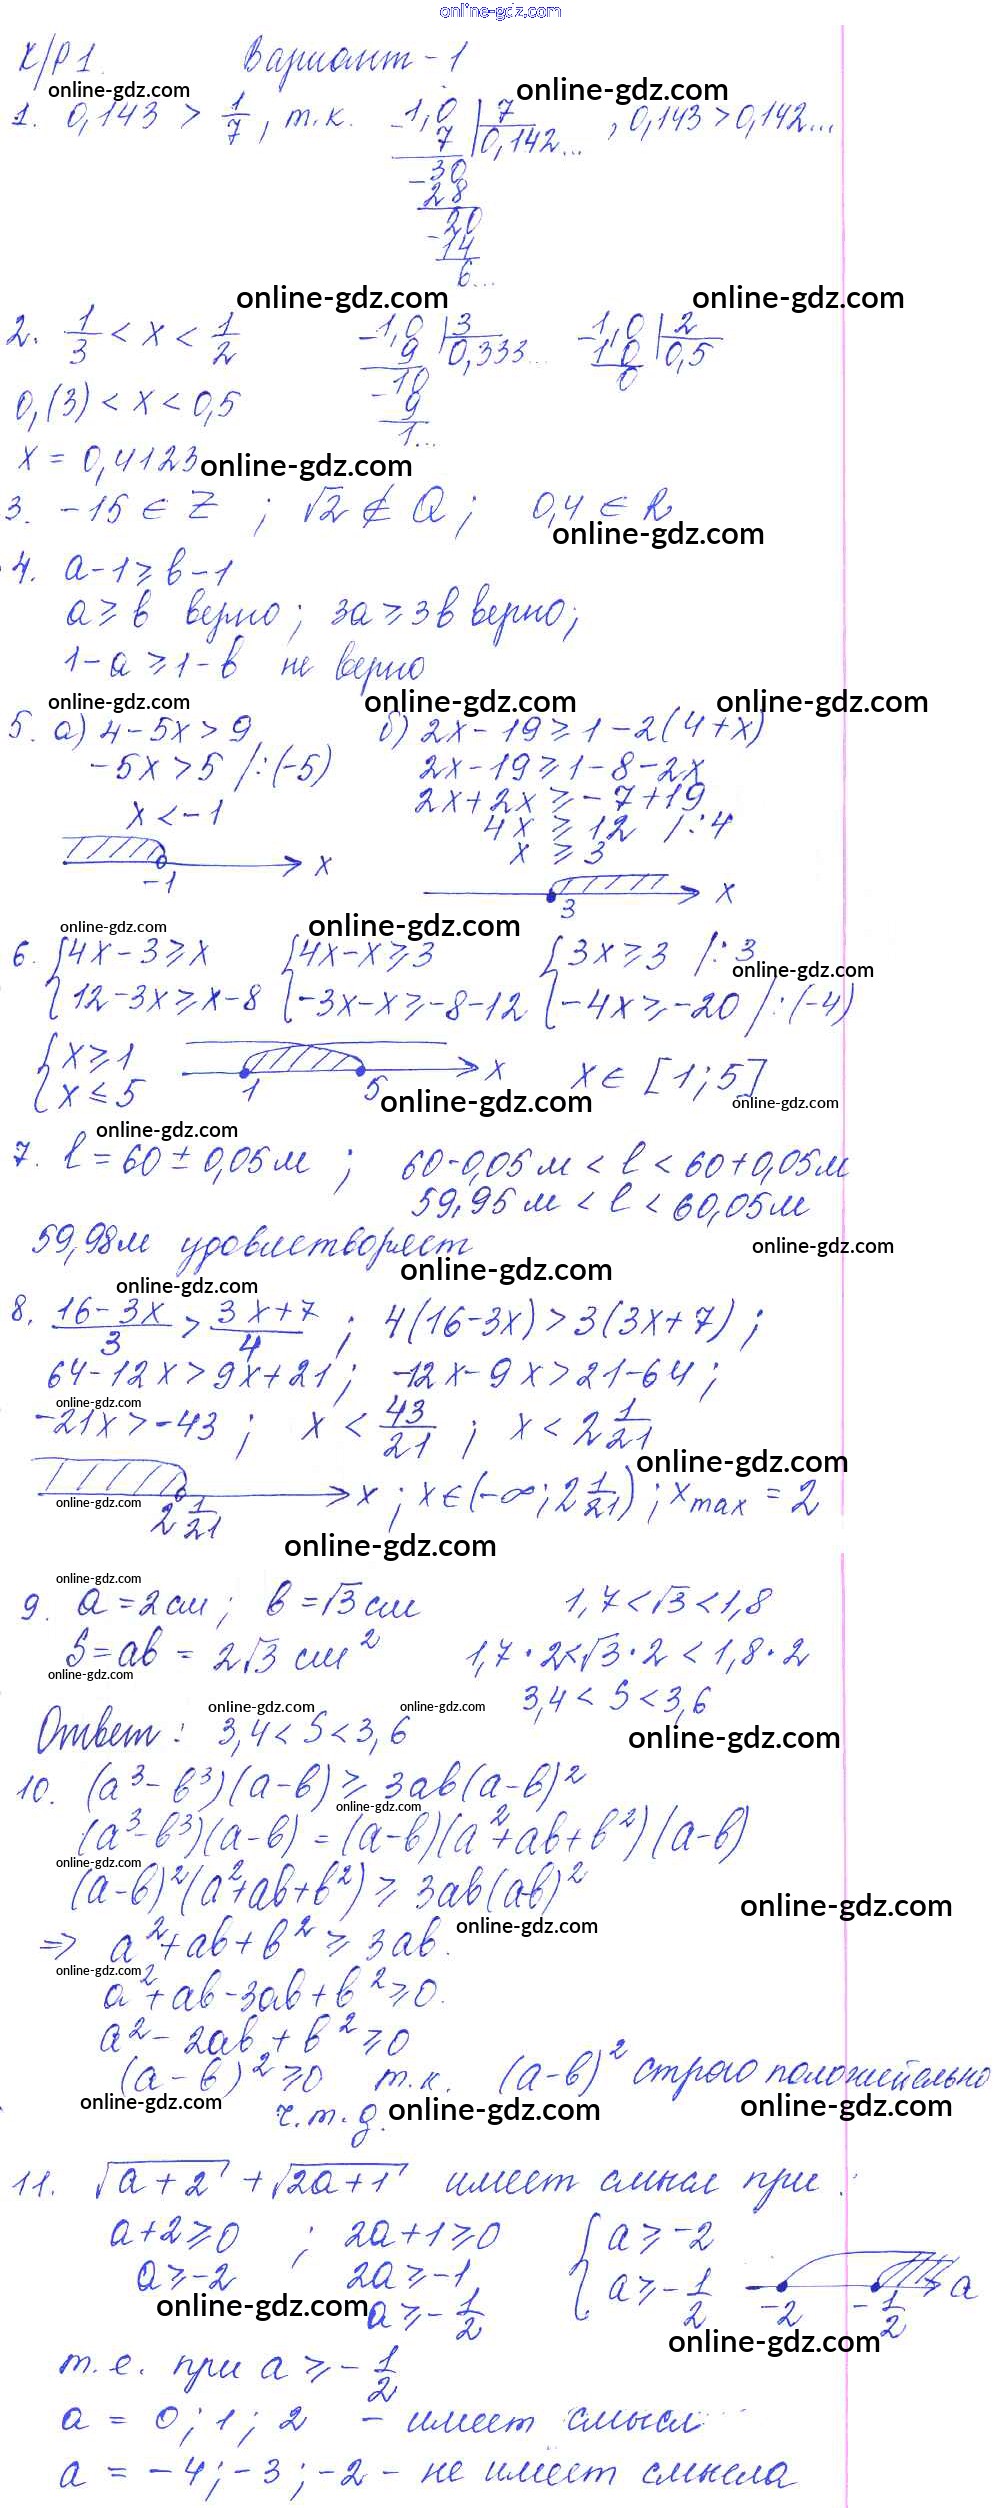 online-gdz.com
К/Р 1. Вариант - 1
online-gdz.com online-gdz.com
1. 0,143 > 1/7, т.к. 1,0 | 7 , 0,143 > 0,142...
7 0,142...
-30
28
-20
14
6...
online-gdz.com online-gdz.com
2. 1/3 < x < 1/2 -1,0 | 3 -1,0 | 2
9 0,333... 10 0,5
0,(3) < x < 0,5 -10 0
9
1...
x = 0,4123 online-gdz.com
3. -15 ∈ Z ; √2 ∉ Q ; 0,4 ∈ R
online-gdz.com
4. a-1 ⩾ b-1
a ⩾ b верно; 3a ⩾ 3b верно;
1-a ⩾ 1-b не верно
online-gdz.com online-gdz.com online-gdz.com
5. а) 4-5x > 9 б) 2x-19 ⩾ 1-2(4+x)
-5x > 5 /:(-5) 2x-19 ⩾ 1-8-2x
x < -1 2x+2x ⩾ -7+19
4x ⩾ 12 /:4
x ⩾ 3
-1 x
3 x
online-gdz.com online-gdz.com
6. {4x-3 ⩾ x {4x-x ⩾ 3 {3x ⩾ 3 /:3
online-gdz.com
{12-3x ⩾ x-8 {-3x-x ⩾ -8-12 {-4x ⩾ -20 /:(-4)
{x ⩾ 1 1 5 x x ∈ [1;5]
{x ⩽ 5
online-gdz.com online-gdz.com
online-gdz.com
7. l = 60 ± 0,05 м ; 60-0,05 м < l < 60+0,05 м
59,95 м < l < 60,05 м
59,98 м удовлетворяет online-gdz.com
online-gdz.com
online-gdz.com
8. (16-3x)/3 > (3x+7)/4 ; 4(16-3x) > 3(3x+7) ;
64-12x > 9x+21 ; -12x-9x > 21-64 ;
online-gdz.com
-21x > -43 ; x < 43/21 ; x < 2 1/21
online-gdz.com
2 1/21 x ; x ∈ (-∞; 2 1/21) ; x max = 2
online-gdz.com
online-gdz.com
online-gdz.com
9. a = 2 см ; b = √3 см 1,7 < √3 < 1,8
S = ab = 2√3 см² 1,7·2 < √3·2 < 1,8·2
online-gdz.com
3,4 < S < 3,6
online-gdz.com online-gdz.com
Ответ: 3,4 < S < 3,6 online-gdz.com
10. (a³-b³)(a-b) ⩾ 3ab(a-b)²
online-gdz.com
(a³-b³)(a-b) = (a-b)(a²+ab+b²)(a-b)
online-gdz.com
(a-b)²(a²+ab+b²) ⩾ 3ab(ab)²
online-gdz.com
online-gdz.com
⇒ a²+ab+b² ⩾ 3ab.
online-gdz.com
a²+ab-3ab+b² ⩾ 0.
a²-2ab+b² ⩾ 0
(a-b)² ⩾ 0 т.к. (a-b)² строго положительно
online-gdz.com ч.т.д. online-gdz.com online-gdz.com
11. √a+2 + √2a+1 имеет смысл при:
a+2 ⩾ 0 ; 2a+1 ⩾ 0 {a ⩾ -2
a ⩾ -2 2a ⩾ -1 {a ⩾ -1/2 -2 -1/2 a
online-gdz.com a ⩾ -1/2
online-gdz.com
т.е. при a ⩾ -1/2
a = 0; 1; 2 - имеет смысл
a = -4; -3; -2 - не имеет смысла